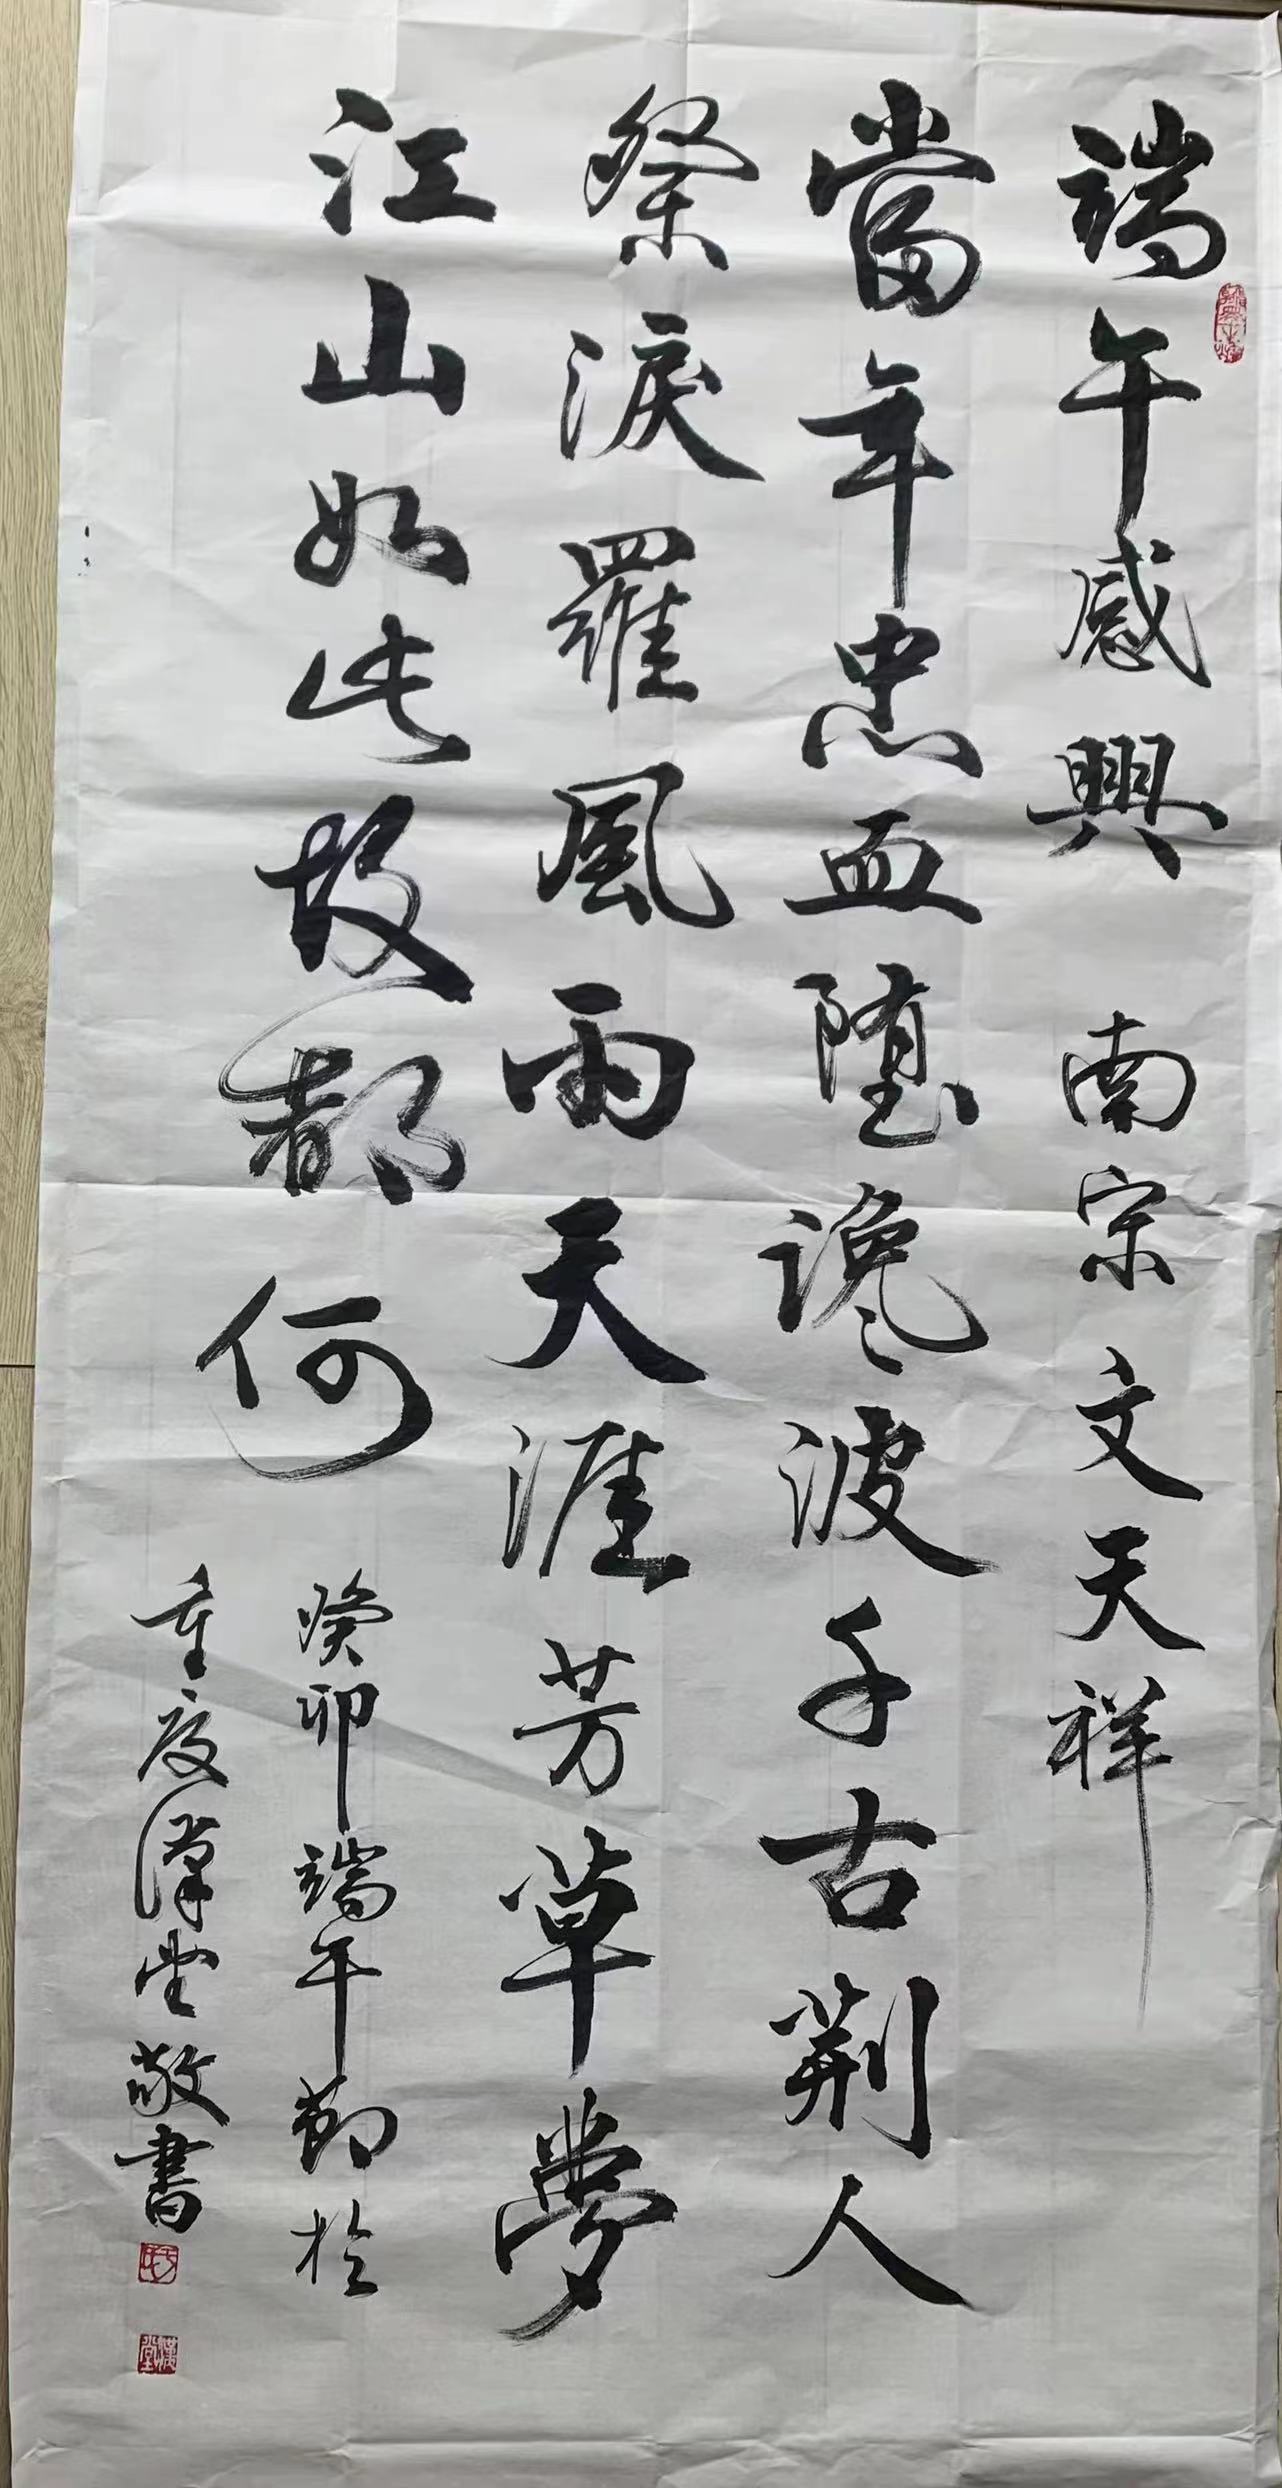 端午感興 南宗文天祥
當年忠血堕谗波千古荆人
祭淚羅風雨天涯芳草夢
江山如此故都何
癸卯端午節於
重慶漢堂敬書
漢堂